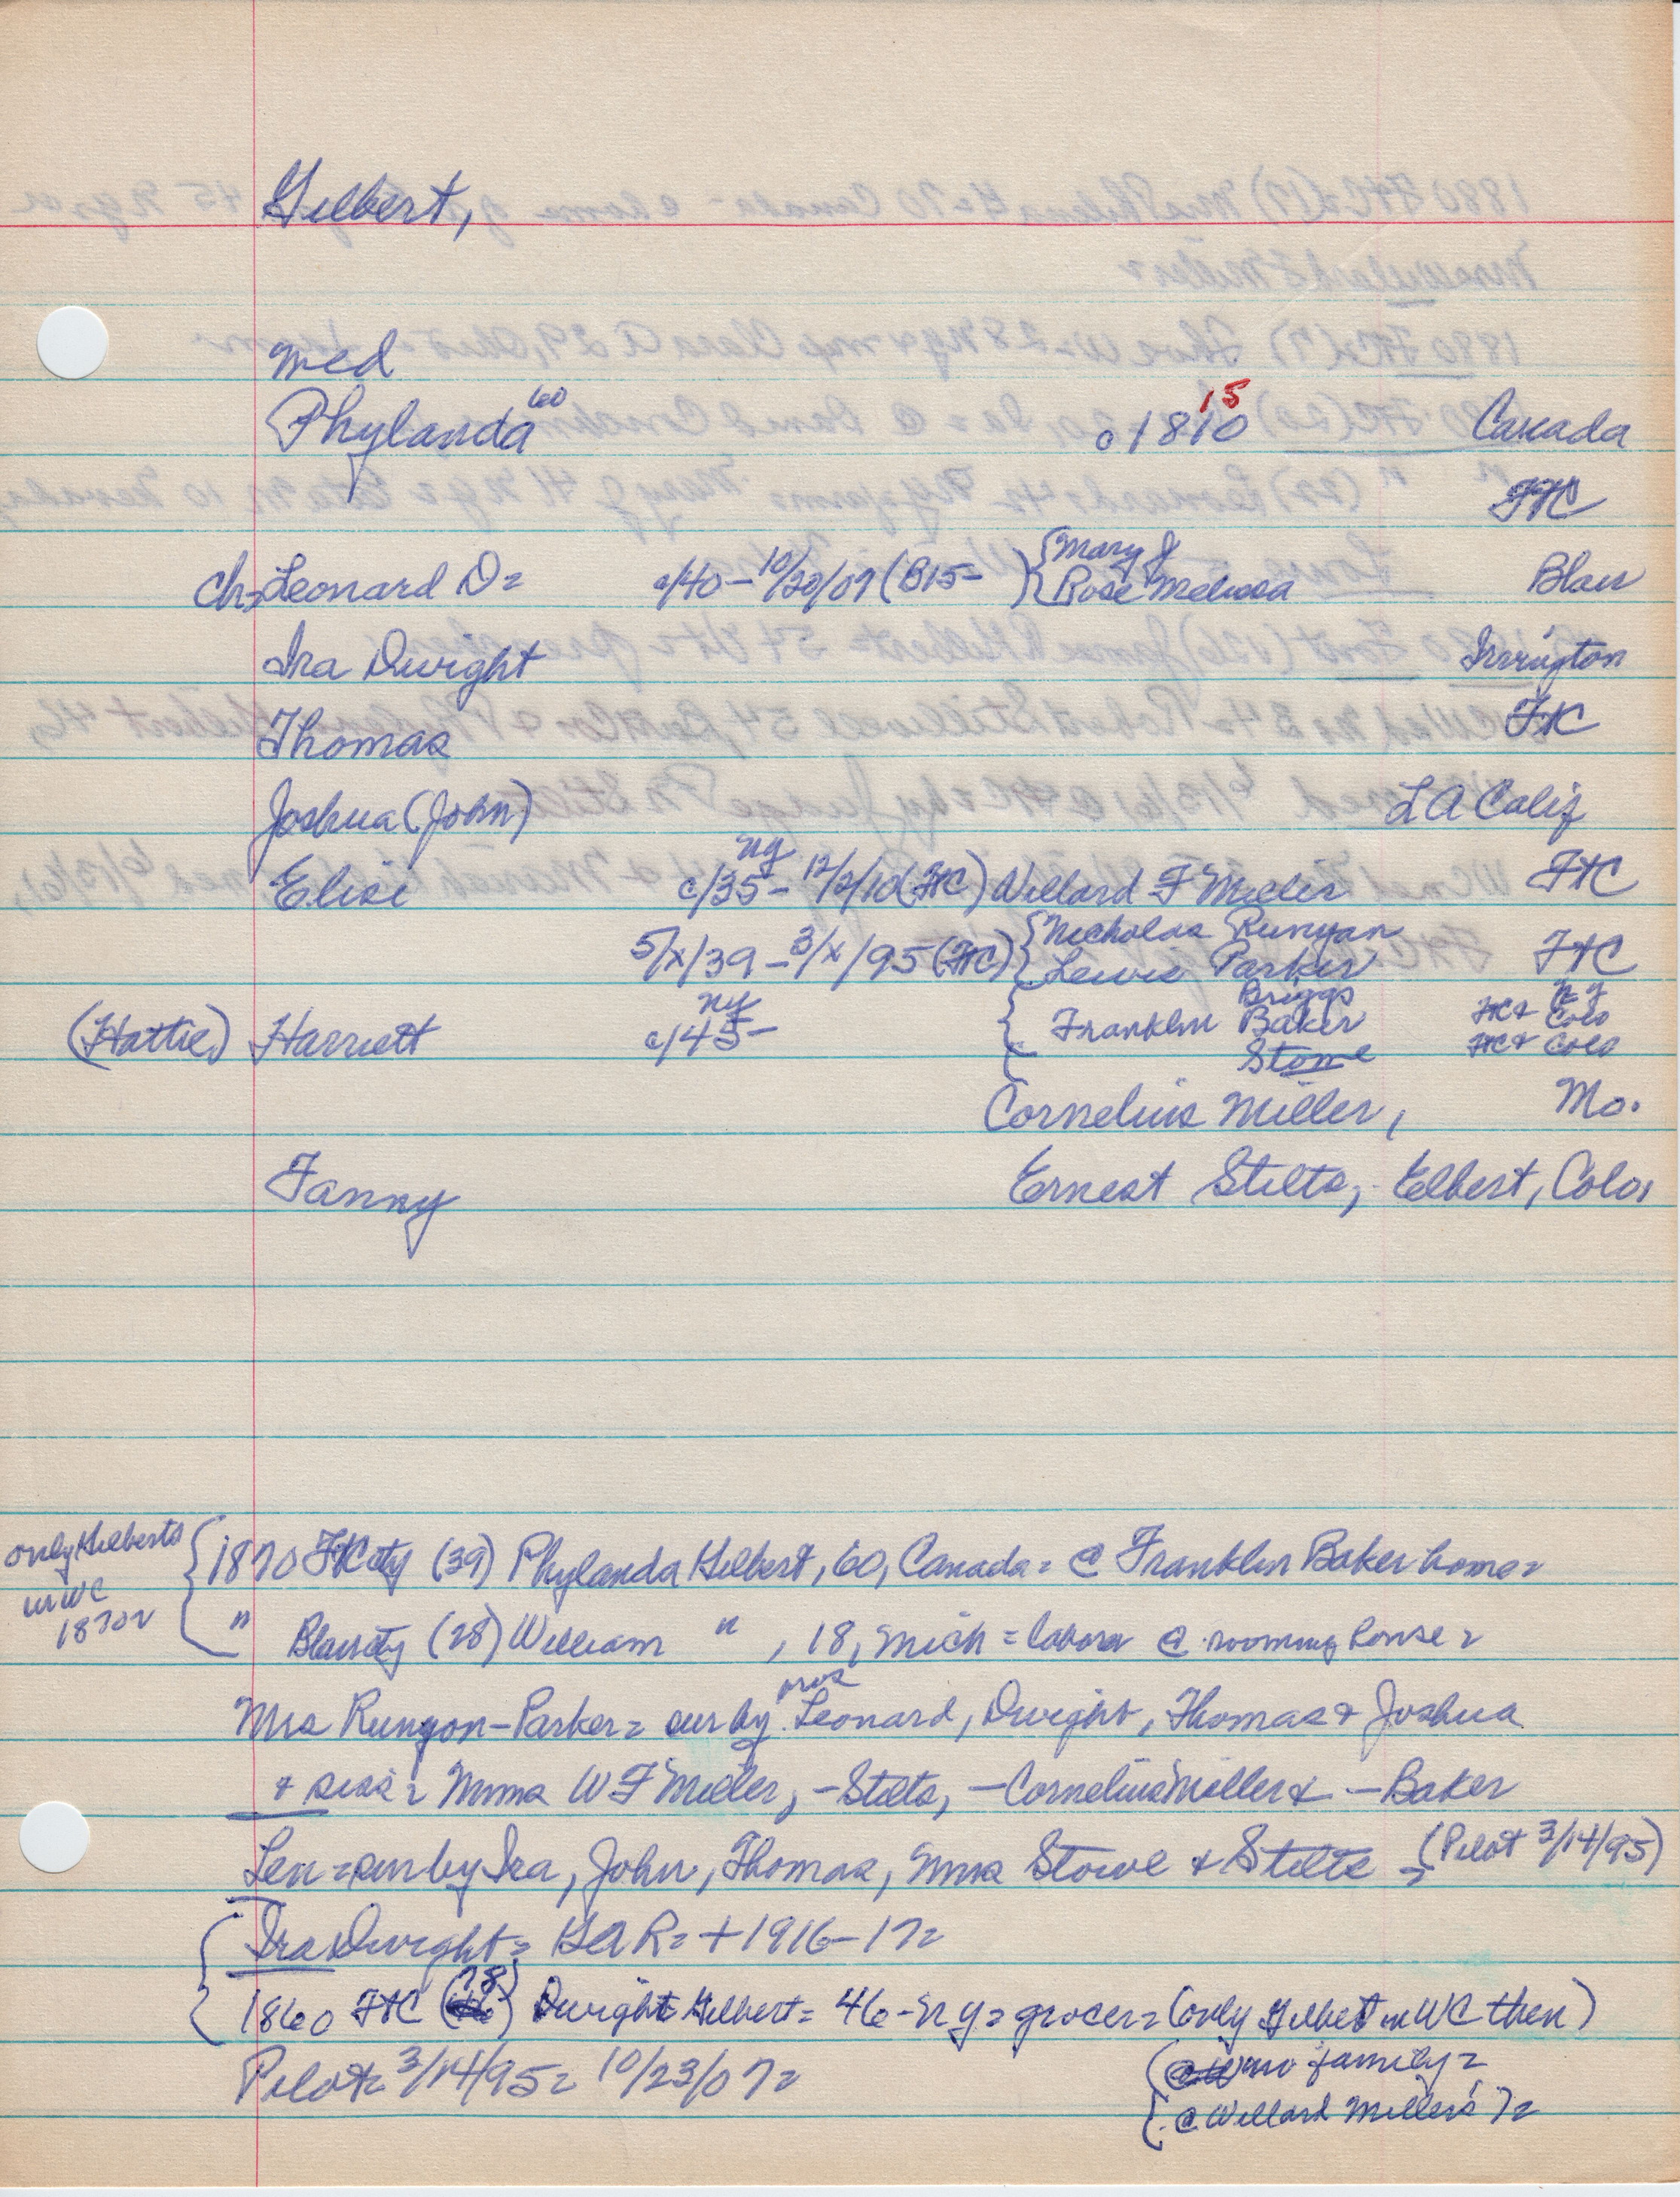 Gilbert,
med
Phylanda 60 c1810 15 Canada
FTC
ch= Leonard D= c/40 - 10/20/07 (B15- ) { Mary J Blair
Rose Melissa
Ira Dwight Irvington
Thomas FTC
Joshua (John) LA Calif
Elisi NY c/35 - 12/2/10 (FTC) Willard F Miller FTC
5/x/39 - 3/x/95 (FTC) { Nicholas Runyan
Lewis Parker FTC
Briggs NY
(Hattie) Harriett NY c/45- { Franklin Baker FTC & Colo
Stowe FTC & Colo
Cornelius Miller, Mo.
Fanny Ernest Stilts, Elbert, Colo.
only Gilberts in WC 1870=
1870 FTCity (39) Phylanda Gilbert, 60, Canada = @ Franklin Baker home=
" Blair City (28) William " , 18, Mich = labor @ rooming house=
Mrs Runyon-Parker= sur by bros Leonard, Dwight, Thomas & Joshua
& siss= Mmes W F Miller, -Stilts, -Cornelius Miller & -Baker
Len = sur by Ira, John, Thomas, Mmes Stowe & Stilts = (Pilot 3/14/95)
Ira Dwight= GAR= + 1916-17=
1860 FTC (18) Dwight Gilbert= 46-NY= grocer= (only Gilbert in WC then)
(no family=
Pilot= 3/14/95= 10/23/07=
(@ Willard Miller's)=